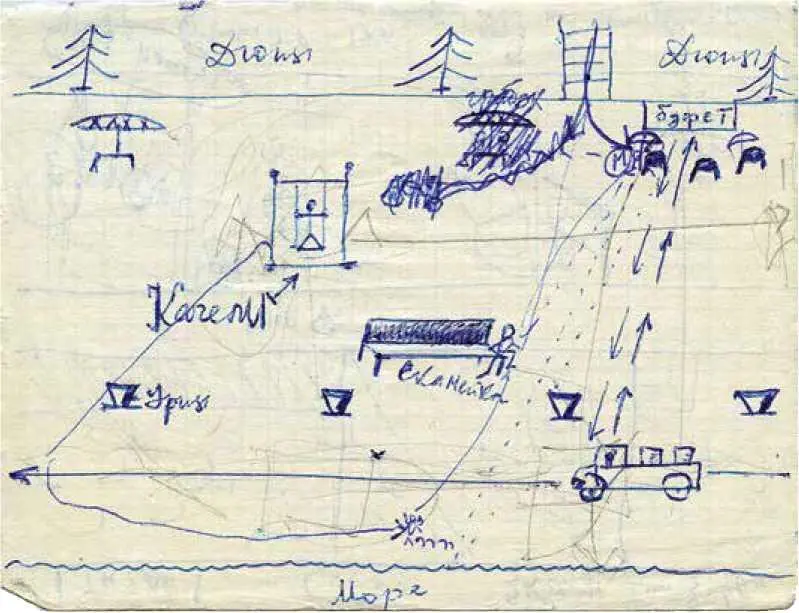 Дюны
Дюны
грибок
буфет
М
Качели
Скамейка
Урны
Море